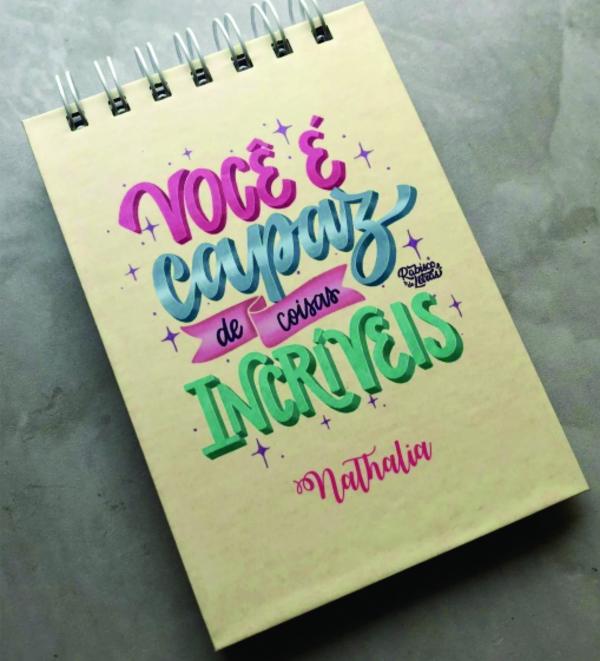 VOCÊ É
capaz
de coisas
INCRÍVEIS
Rabisco
de Letras
Nathalia